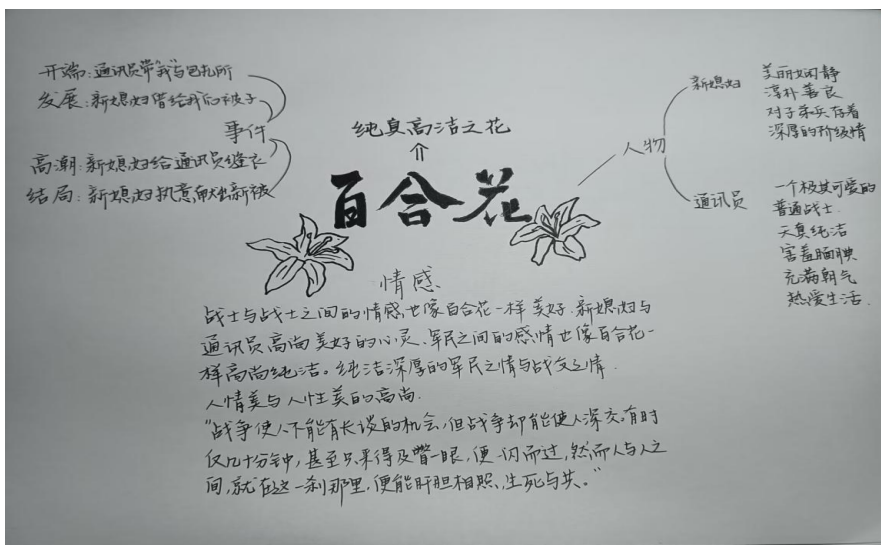 开端：通讯员带"我"与包扎所
发展：新媳妇借给我们被子
事件
高潮：新媳妇给通讯员缝衣
结局：新媳妇执意献出新被
纯真高洁之花
百合花
人物
新媳妇
美丽娴静
淳朴善良
对子弟兵存着
深厚的阶级情
通讯员
一个极其可爱的
普通战士.
天真纯洁
害羞腼腆
充满朝气
热爱生活.
情感
战士与战士之间的情感,也像百合花一样美好.新媳妇与
通讯员高尚美好的心灵、军民之间的感情也像百合花一
样高尚纯洁。纯洁深厚的军民之情与战友之情.
人情美与人性美的高尚.
"战争使人不能有长谈的机会,但战争却能使人深交,有时
仅几十分钟,甚至只来得及瞥一眼,便一闪而过,然而人与人之
间,就在这一刹那里,便能肝胆相照、生死与共。"